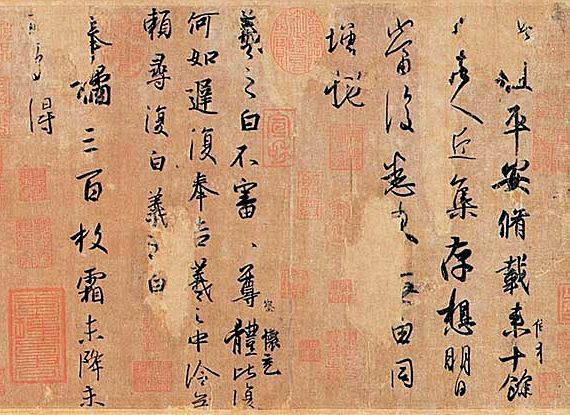 此粗平安脩載來十餘
日諸人近集存想明日
當復悉來無由同
增慨
羲之白不審、尊體比復
察 懷充
何如遲復奉告羲之中冷無
賴尋復白羲之白
奉橘三百枚霜未降未
可多得